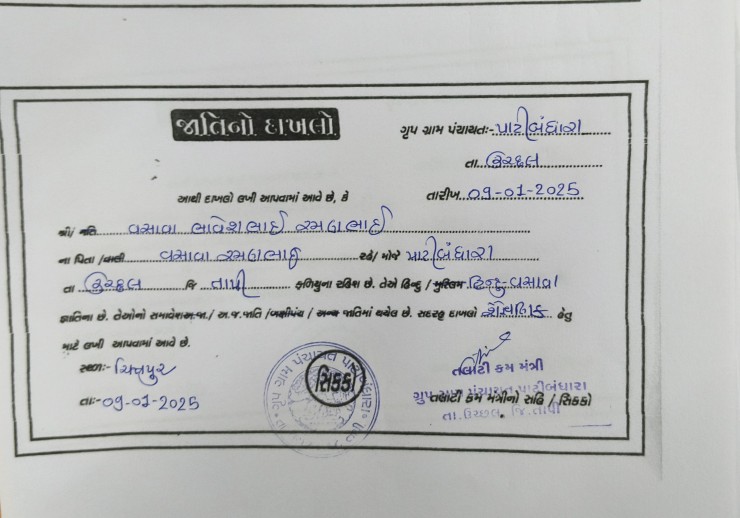 જાતિનો દાખલો
ગૃપ ગ્રામ પંચાયતઃ- પાટીબંધારા
તા. ઉચ્છલ
આથી દાખલો લખી આપવામાં આવે છે, કે તારીખ 09-01-2025
શ્રી/ વસાવા ભાવેશભાઈ રમણભાઈ
ના પિતા /વાલી વસાવા રમણભાઈ રહે/ મોજે પાટીબંધારા
તા ઉચ્છલ જિ તાપી ફળિયુના રહિશ છે. તેઓ હિન્દુ / મુસ્લિમ હિન્દુ-વસાવા
જ્ઞાતિના છે. તેઓનો સમાવેશ અ.જા. / અ.જ.જાતિ /બક્ષીપંચ / અન્ય જાતિમાં થયેલ છે. સદરહુ દાખલો શૈક્ષણિક હેતુ
માટે લખી આપવામાં આવે છે.
સ્થળઃ-
તાઃ-09-01-2025
સિક્કો
તલાટી કમ મંત્રી
ગૃપ ગ્રામ પંચાયત પાટીબંધારા
તલાટી કમ મંત્રીનો સહિ / સિક્કો
તા. ઉચ્છલ, જિ. તાપી